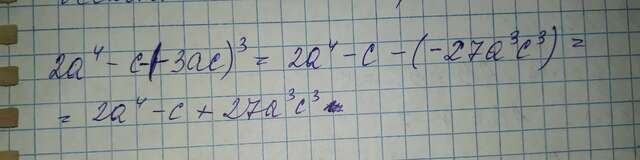 2a⁴ - c(-3ac)³ = 2a⁴ - c - (-27a³c³) =
= 2a⁴ - c + 27a³c³